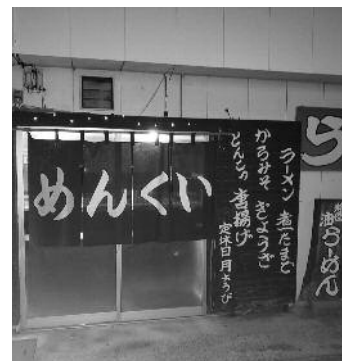 めんくい
ラーメン 煮たまご
からみそ ぎょうざ
とんこつ 唐揚げ
定休日月ようび
ら
油らーめん